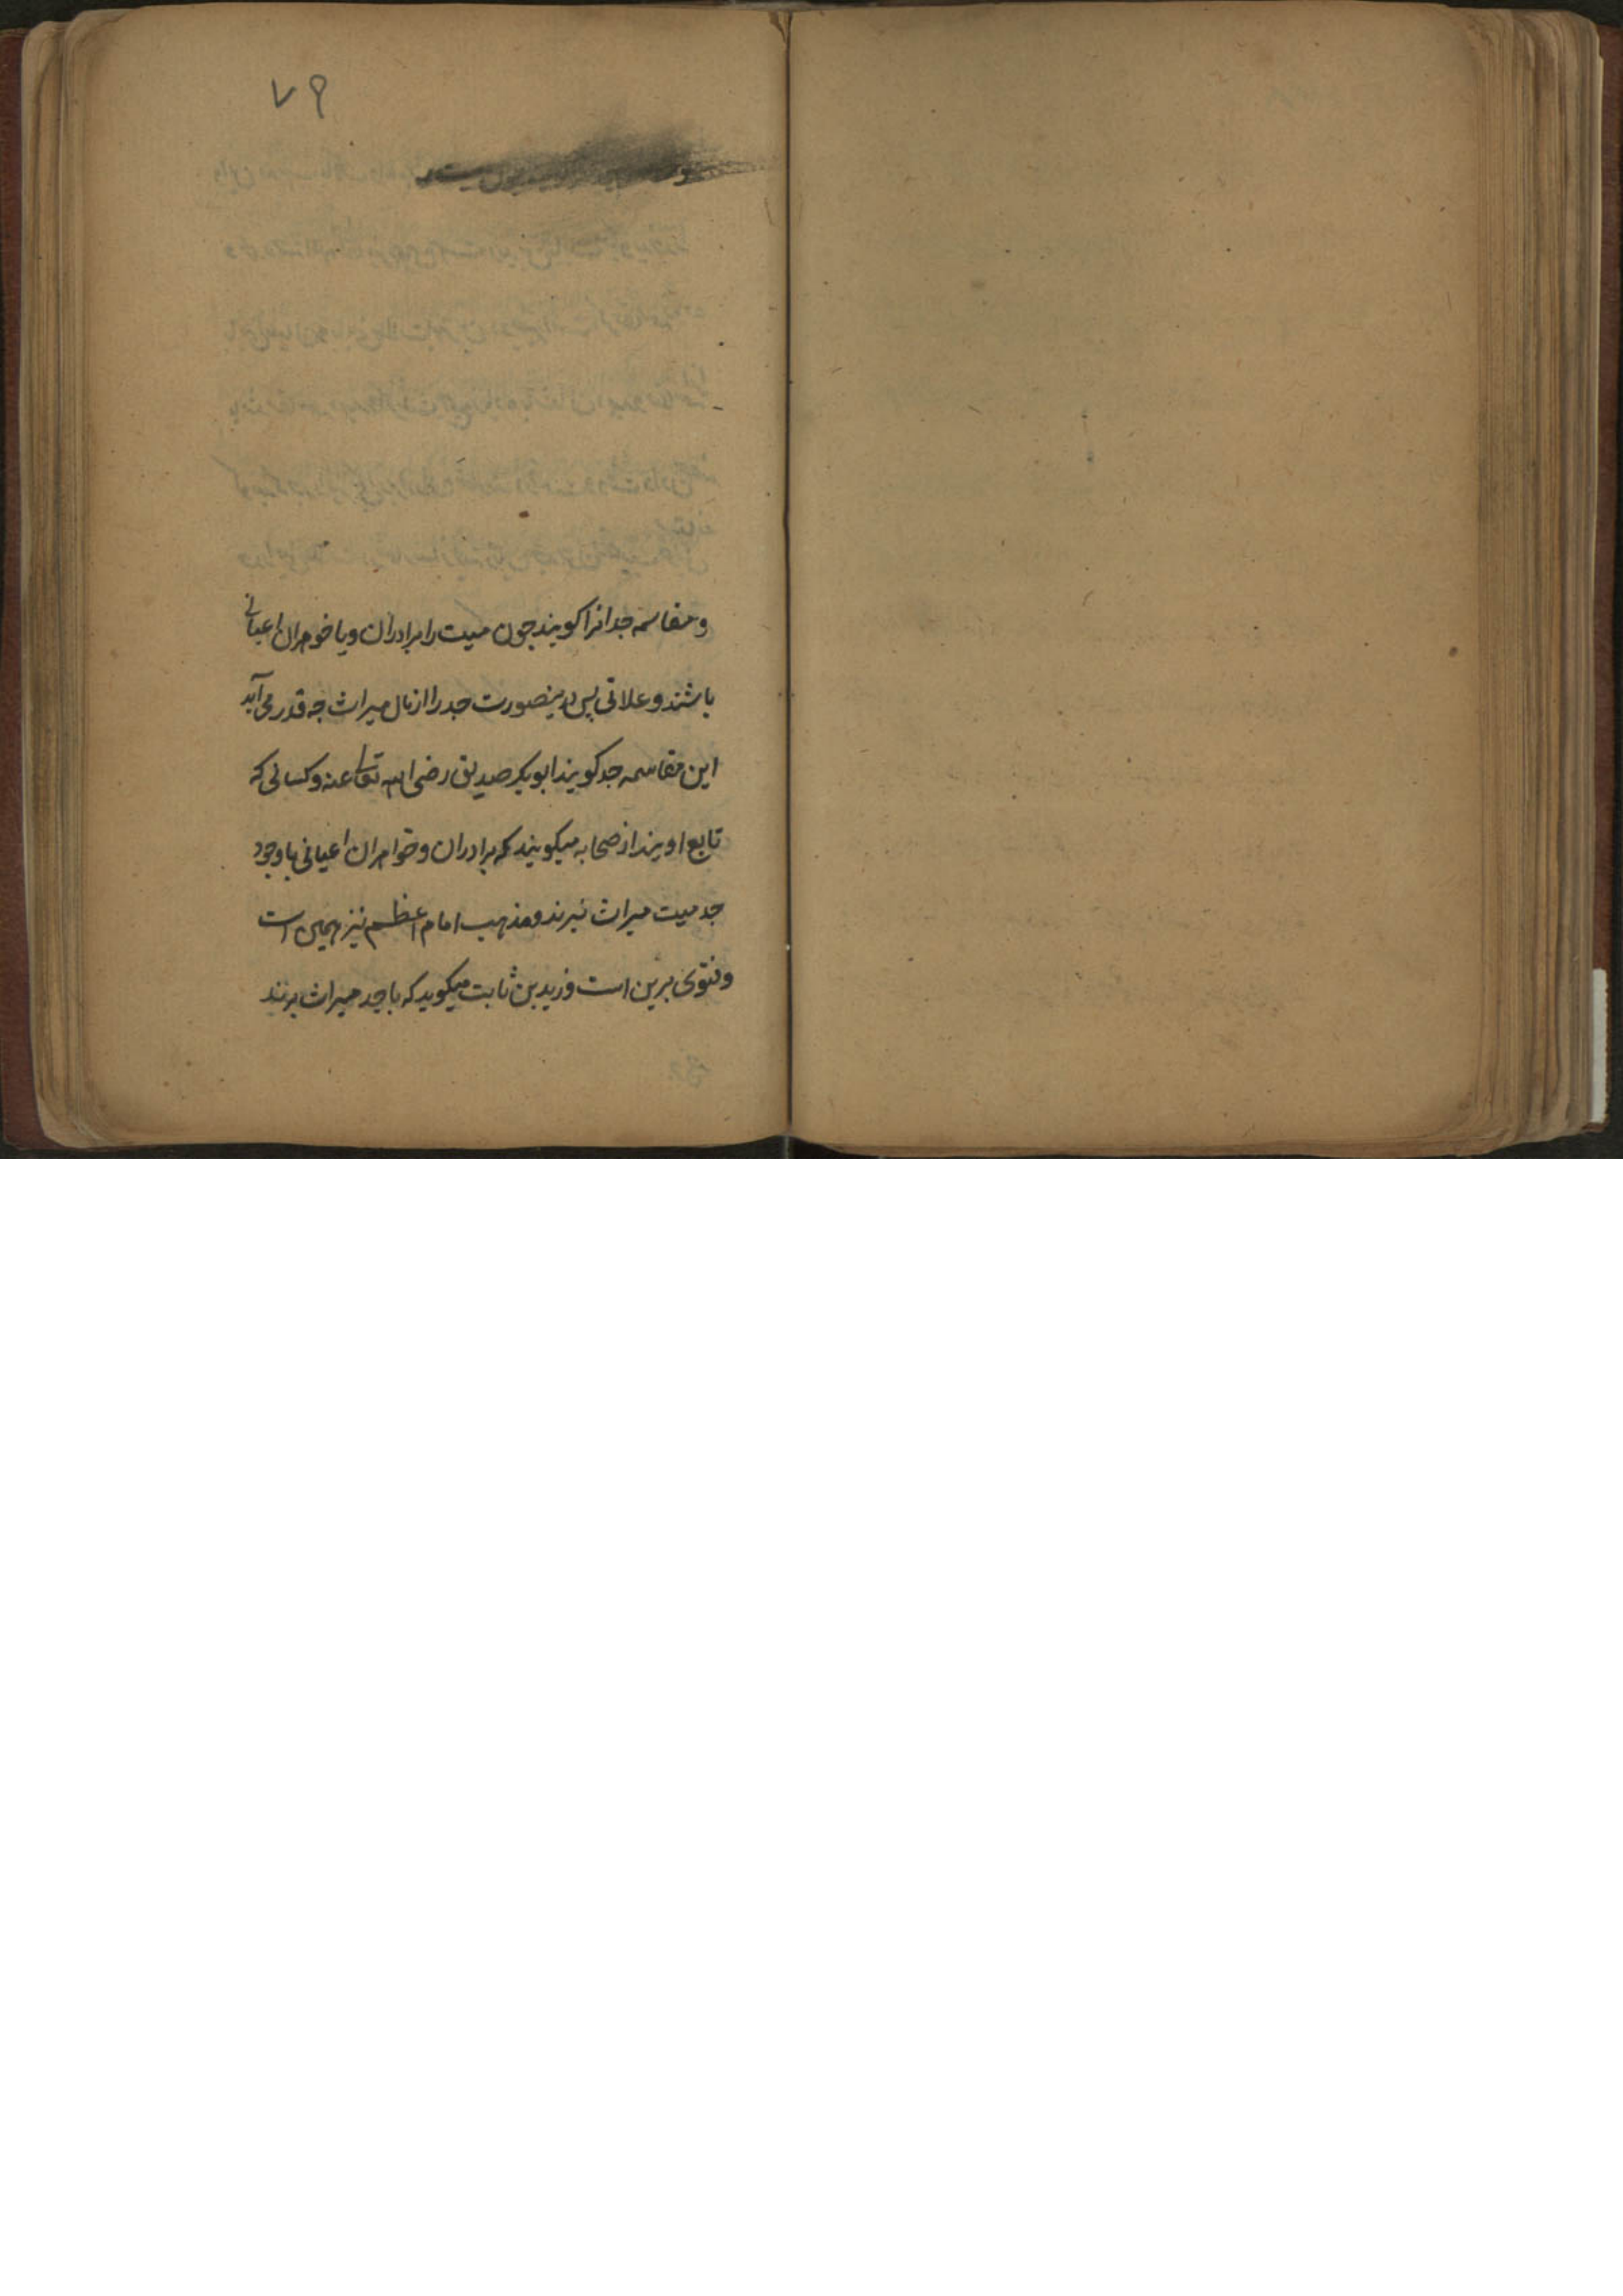 ۷۹
و مقاسمه جد انرا کویند جون میت را برادران و یا خواهران اعیانی
باشند و علاتی پس درینصورت جد را از مال میراث جه قدر می آید
این مقاسمه جد کویند ابو بکر صدیق رضی الله تعالی عنه و کسانی که
تابع اویند از صحابه میکویند که برادران و خواهران اعیانی با وجود
جد میت میراث نبرند و مذهب امام اعظم نیز همین است
و فتوی برین است و زید بن ثابت میکوید که با جد میراث برند